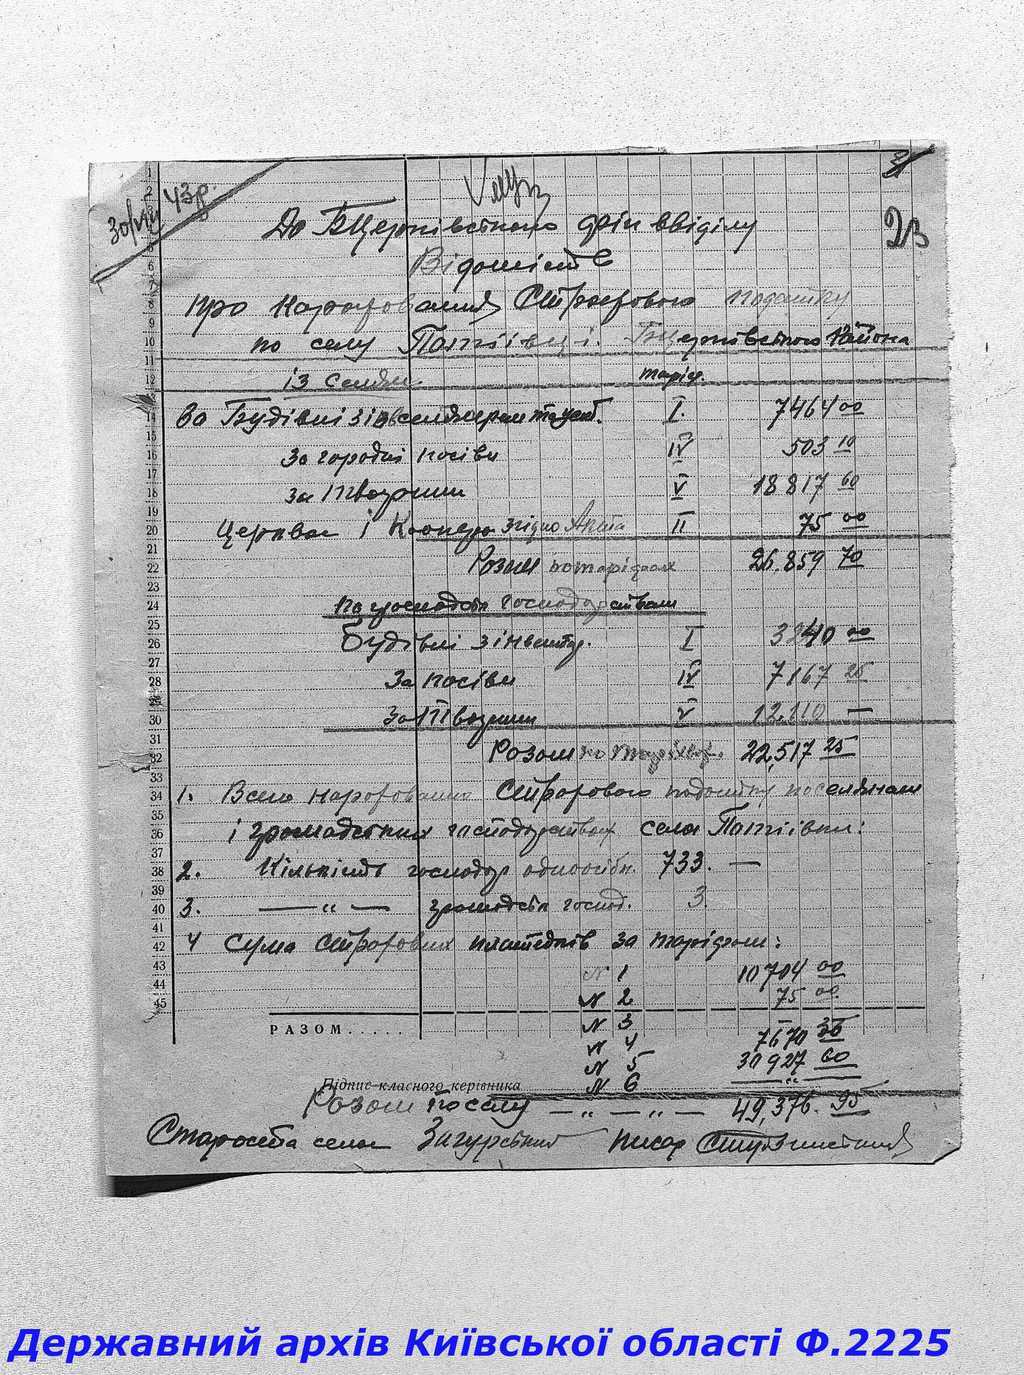 43р.
23
До БЦерківського фін відділу
Відомість
про нарахования Страхового податку
по селу Потіївці БЦерківського Района
із селян тариф.
За Будівлі з інвентарем I 7464 00
За городні посіви IV 503 10
За тварини V 18817 60
Церква і Коопер. згідно Акта II 75 00
Разом по тарифам 26.859 70
по громадськ господарствам
Будівлі з інвентар. I 3240 00
За посіви IV 7167 25
За тварини V 12.110 —
Разом по тарифах. 22,517 25
1. Всего нараховання Страхового податку по селянам
і громадських господарствах села Потіївки:
2. Кількість господар одноосібн. 733. —
3. — „ — громадськ господ. 3
4 Сума страхових платежів за тарифом:
N 1 10704 00
N 2 75 00
РАЗОМ.....
N 3 —
N 4 7670 35
N 5 30927 60
N 6 — „ —
Підпис класного керівника
Разом по селу — „ — „ — 49,376. 95
Староста села Загурський писар
Державний архів Київської області Ф.2225